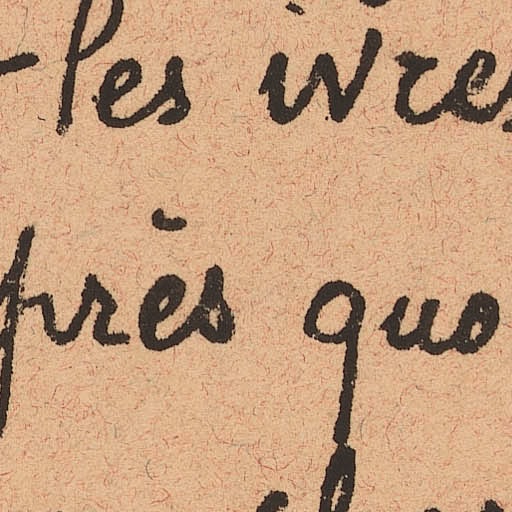 -les ivres
près quo